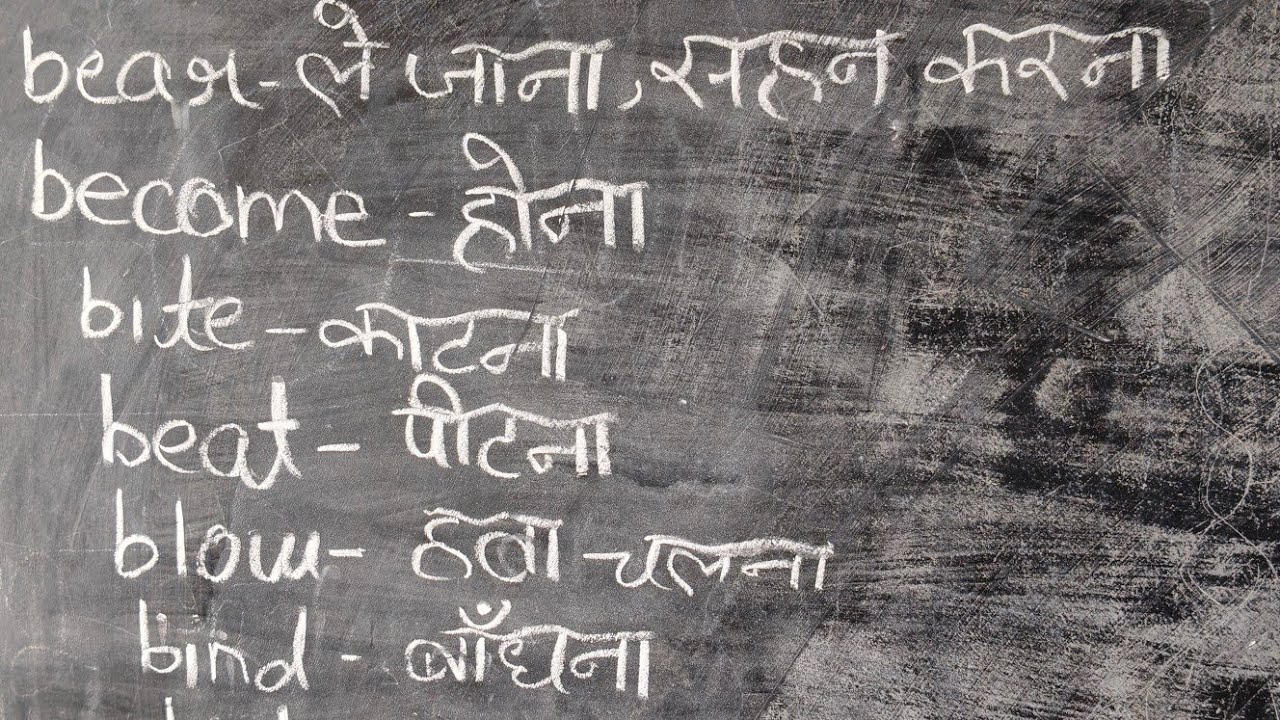 bear - ले जाना, सहन करना
become - होना
bite - काटना
beat - पीटना
blow - हवा - चलना
bind - बाँधना